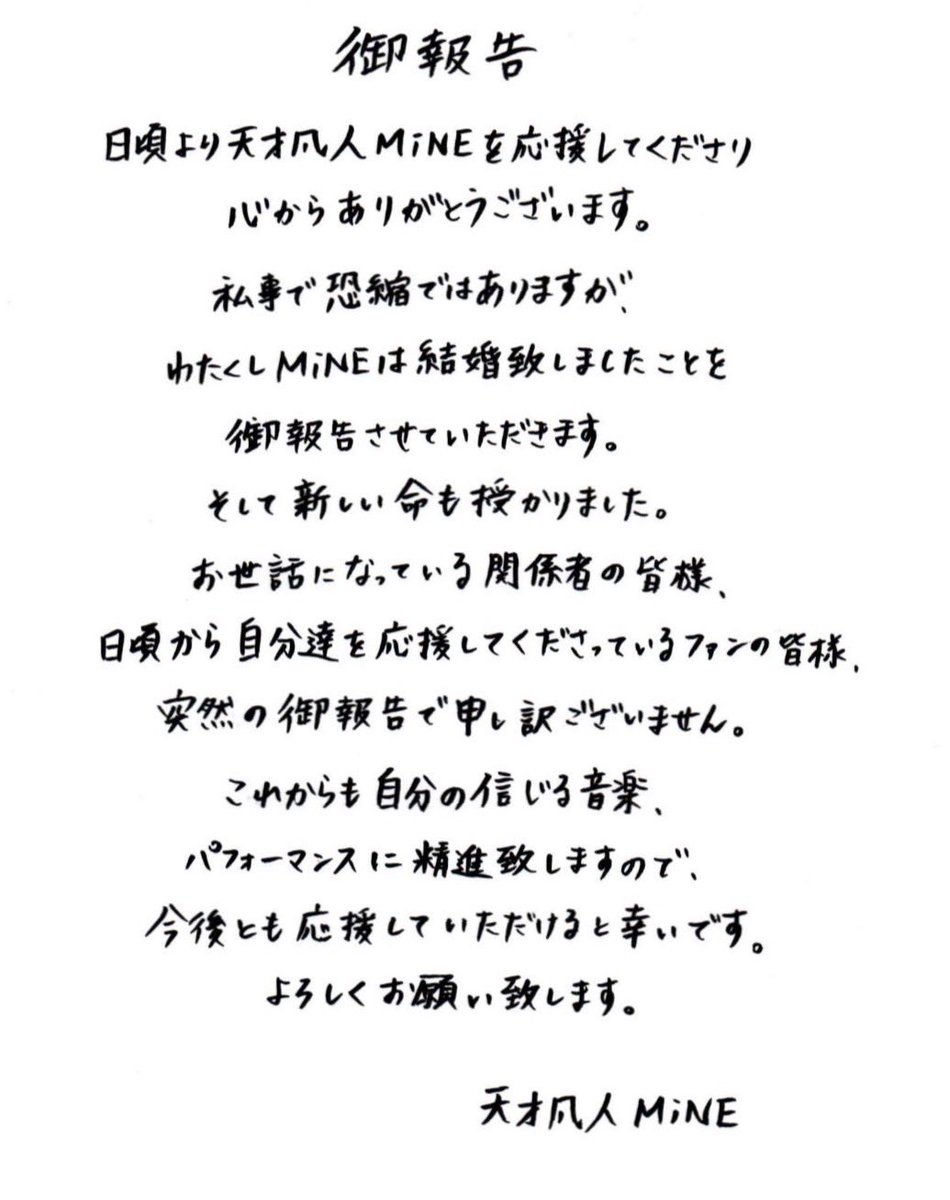 御報告
日頃より天才凡人MiNEを応援してくださり
心からありがとうございます。
私事で恐縮ではありますが、
わたくしMiNEは結婚致しましたことを
御報告させていただきます。
そして新しい命も授かりました。
お世話になっている関係者の皆様、
日頃から自分達を応援してくださっているファンの皆様、
突然の御報告で申し訳ございません。
これからも自分の信じる音楽、
パフォーマンスに精進致しますので、
今後とも応援していただけると幸いです。
よろしくお願い致します。
天才凡人MiNE